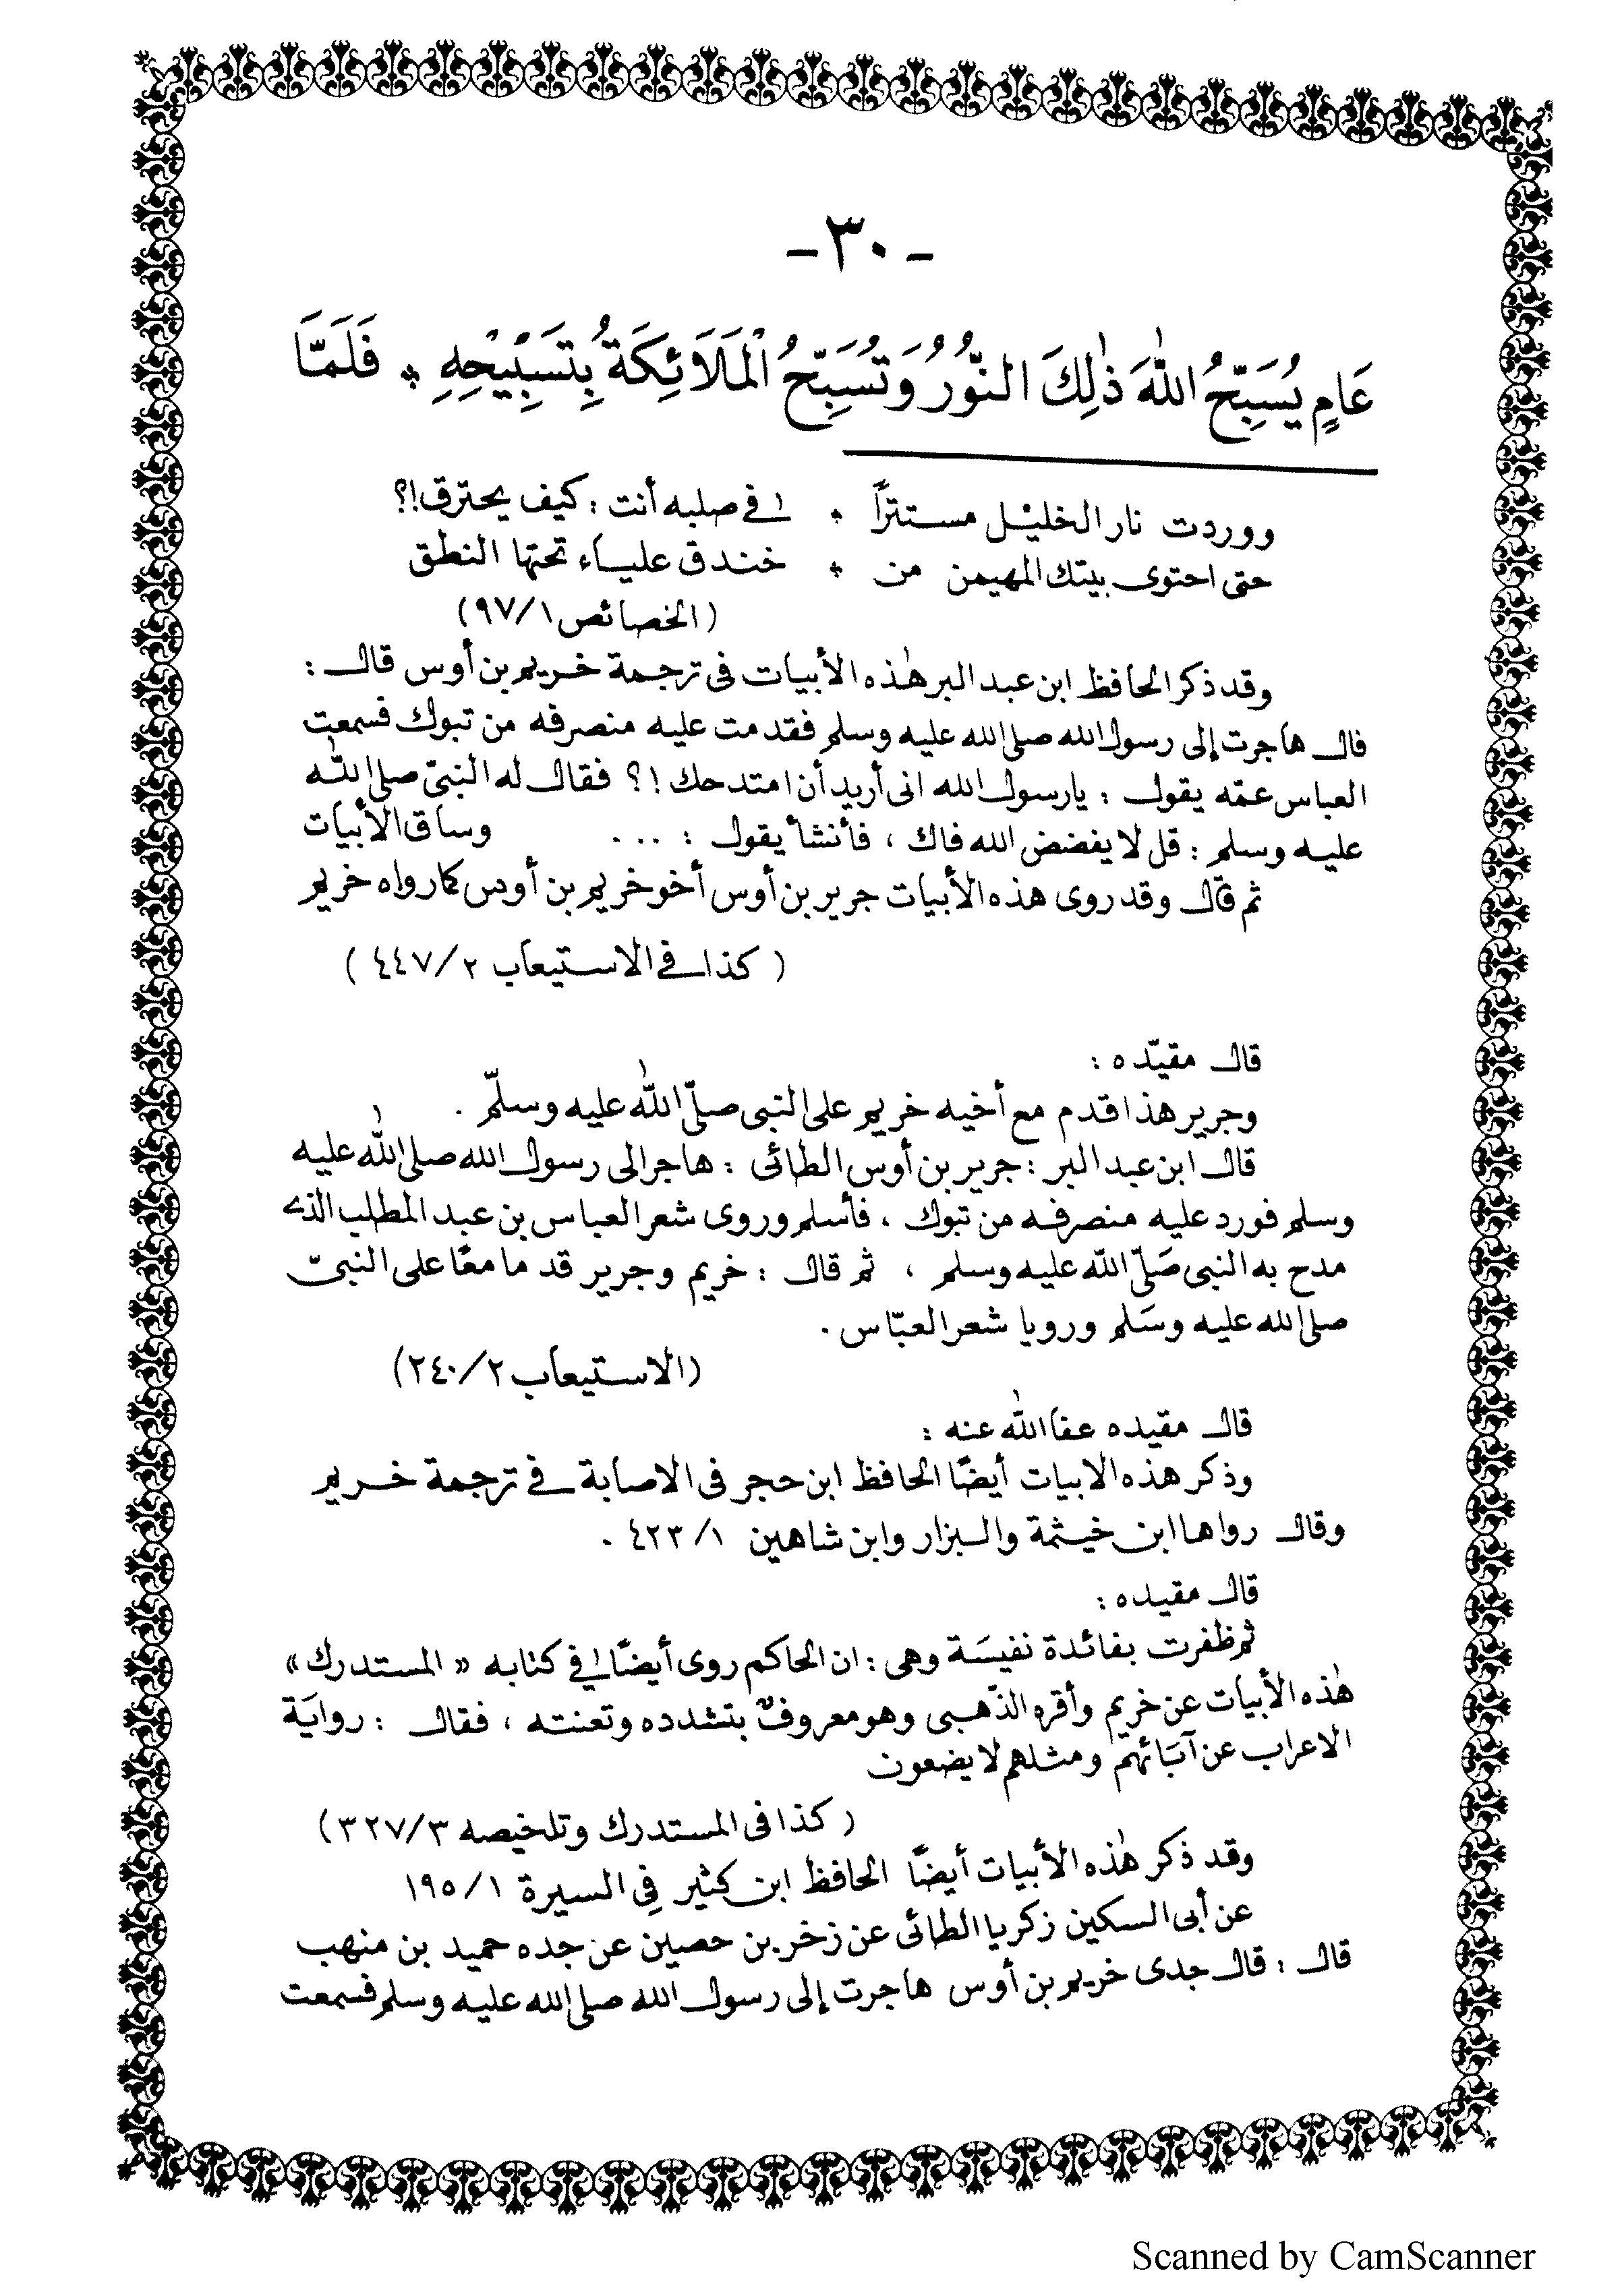 - ٣٠ -
عَامٍ يُسَبِّحُ اللّٰهَ ذٰلِكَ النُّوُرُ وَتُسَبِّحُ الْمَلَائِكَةُ بِتَسْبِيْحِهِ * فَلَمَّا
ووردت نار الخليل مستترًا * في صلبه أنت : كيف يحترق !؟
حتى احتوى بيتك المهيمن من * خندق علياء تحتها النطق
(الخصائص ٩٧/١)
وقد ذكر الحافظ ابن عبد البر هٰذه الأبيات في ترجمة خريم بن أوس قال :
قال هاجرت إلى رسول الله صلى الله عليه وسلم فقدمت عليه منصرفه من تبوك فسمعت
العباس عمّه يقول : يا رسول الله انى أريد أن امتدحك !؟ فقال له النبيّ صلى اللّٰه
عليه وسلم : قل لا يفضض الله فاك ، فأنشأ يقول : ... وساق الأبيات
ثم قال وقد روى هذه الأبيات جرير بن أوس أخو خريم بن أوس كما رواه خريم
( كذا في الاستيعاب ٤٤٧/٢ )
قال مقيّده :
وجرير هذا قدم مع أخيه خريم على النبى صلّى اللّٰه عليه وسلّم .
قال ابن عبد البر : جرير بن أوس الطائى : هاجر الى رسول الله صلى اللّٰه عليه
وسلم فورد عليه منصرفه من تبوك ، فأسلم وروى شعر العباس بن عبد المطلب الذي
مدح به النبى صَلّى اللّه عليه وسلم ، ثم قال : خريم وجرير قدما معًا على النبىّ
صلى الله عليه وسَلم ورويا شعر العبّاس .
(الاستيعاب ٢٤٠/٢)
قال مقيده عفا اللّٰه عنه :
وذكر هذه الابيات أيضًا الحافظ ابن حجر فى الاصابة في ترجمة خريم
وقال رواها ابن خيثمة والبزار وابن شاهين ٤٢٣/١ .
قال مقيده :
ثم ظفرت بفائدة نفيسَة وهى : ان الحاكم روى أيضًا في كتابه « المستدرك »
هٰذه الأبيات عن خريم وأقره الذّهبى وهو معروفٌ بتشدده وتعنته ، فقال : روايَة
الاعراب عن آبَائهمّ ومثلهم لا يضعون
( كذا فى المستدرك وتلخيصه ٣٢٧/٣)
وقد ذكر هٰذه الأبيات أيضًا الحافظ ابن كثير في السيرة ١٩٥/١
عن أبى السكين زكريا الطائى عن زخر بن حصين عن جده حميد بن منهب
قال : قال جدى خريم بن أوس هاجرت إلى رسول الله صلى الله عليه وسلم فسمعت
Scanned by CamScanner